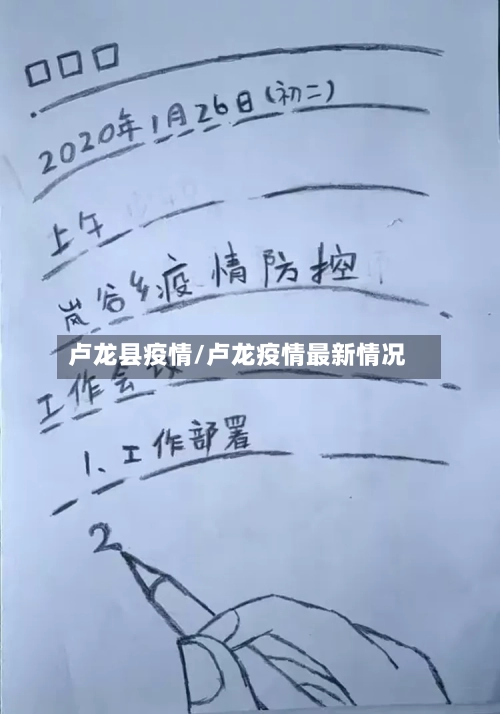 □□□
2020年1月26日(初二)
上午
岚谷乡疫情防控
卢龙县疫情/卢龙疫情最新情况
工作会议
1、工作部署
2